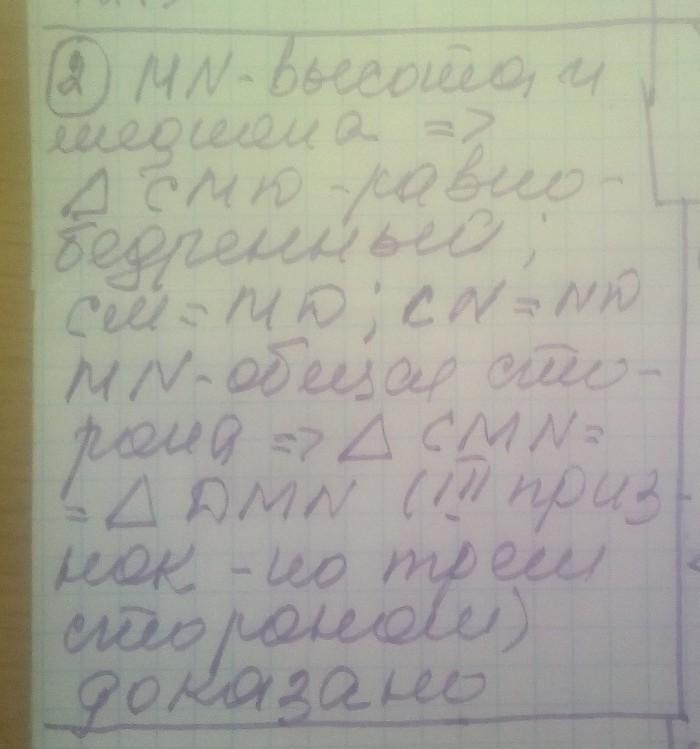 2 MN - высота и
медиана =>
△ CMD - равно-
бедренный;
CM = MD; CN = ND
MN - общая сто-
рона => △ CMN =
= △ DMN (III приз
нак - по трем
сторонам)
доказано